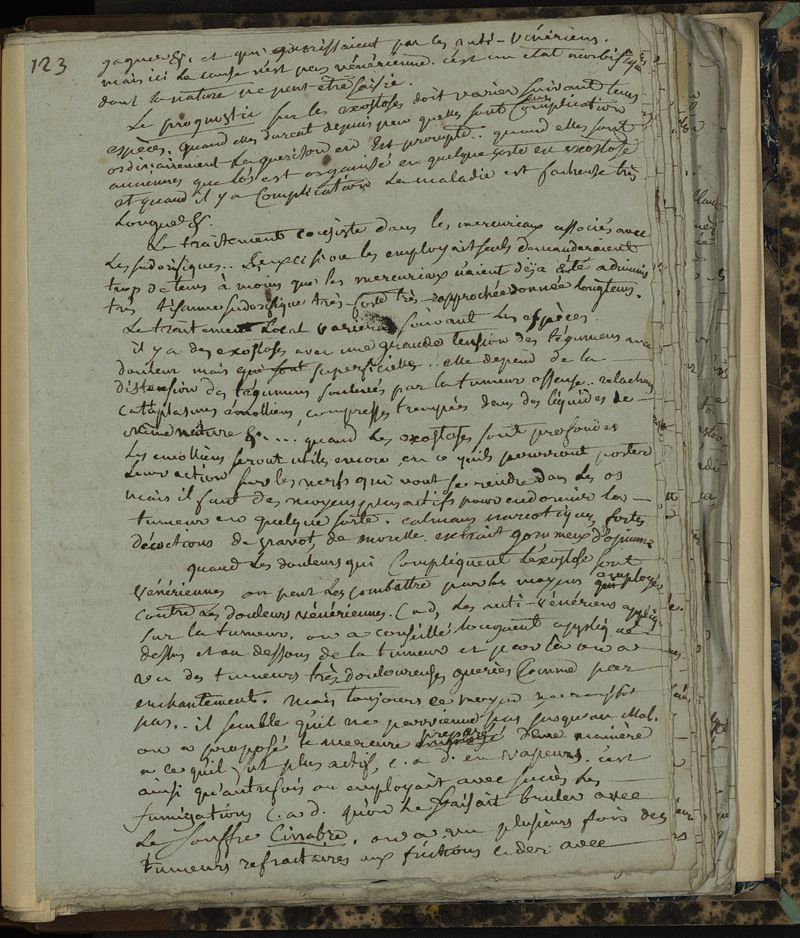 123
gaque &. et qui guerissaient par les anti-vénériens.
mais ici la cause n'est pas vénérienne. c'est un état morbifique
dont la nature ne peut être saisie.
Le prognostic sur les exostoses doit varier suivant leurs
espèces. quand elles durent depuis peu quelles sont sans complication
ordinairement la guerison en est prompte. quand elles sont
anciennes que l'os est organisé en quelque sorte en exostose
et quand il y a complication la maladie est facheuse très
longue &.
Le traitement consiste dans les mercuriaux associés avec
les sudorifiques.. si on les employait seuls demanderaient
trop de tems à moins que les mercuriaux n'aient déja été adminis
trés tisanne sudorifique très-forte très-rapprochée donnée longtems.
Le traitement local variera suivant les espèces
il y a des exostoses avec une grande tension des tégumens une
douleur mais qui superficielle.. elle depend de la
distension des tégumens soulevés par la tumeur osseuse..
cataplasmes émolliens, compresses trempées dans des liquides de
même nature &. ... quand les exostoses sont profondes
les émolliens seront utiles encore en ce quils pourront porter
leur action sur les nerfs qui vont se rendre dans les os
mais il faut des moyens plus actifs pour endormir la
tumeur en quelque sorte. calmans narcotiques, fortes
décoctions de pavot, de morelle. extrait gommeux d'opium.
quand les douleurs qui compliquent l'exostose sont
vénériennes on peut les combattre par les moyens employés
contre les douleurs vénériennes. C. a d. les anti-vénériens appliq
sur la tumeur. on a conseillé l'onguent appliqué
dessus et au dessous de la tumeur et par là on a
vu des tumeurs très douloureuses guéries comme par
enchantement. mais toujours ce moyen ne reussit
pas.. il semble qu'il ne parvienne pas jusqu'au mal.
on a proposé le mercure préparé d'une manière
a ce quil fut plus actif, c. a d. en vapeurs. c'est
ainsi qu'autrefois on employait avec succès les
fumigations C. a d. qu'on le faisait bruler avec
le souffre Cinnabre. on a vu plusieurs fois des
tumeurs refractaires aux frictions ceder avec